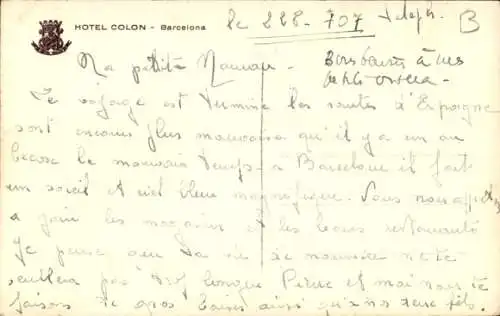 HOTEL COLON - Barcelona
le 228-707 teleph. B
Ma petite Maman - Bons baisers à mes
petits
Le voyage est terminé les routes d'Espagne
sont encore plus mauvaises qu'il y a un an
le mauvais temps - a Barcelone il fait
un soleil et ciel bleu magnifique. Vous nous
les magasins et les bons restaurants
Je pense que ta vie de ne te
semblera pas trop longue Pierre et moi nous te
faisons de gros baisers ainsi qu'à nos deux fils.